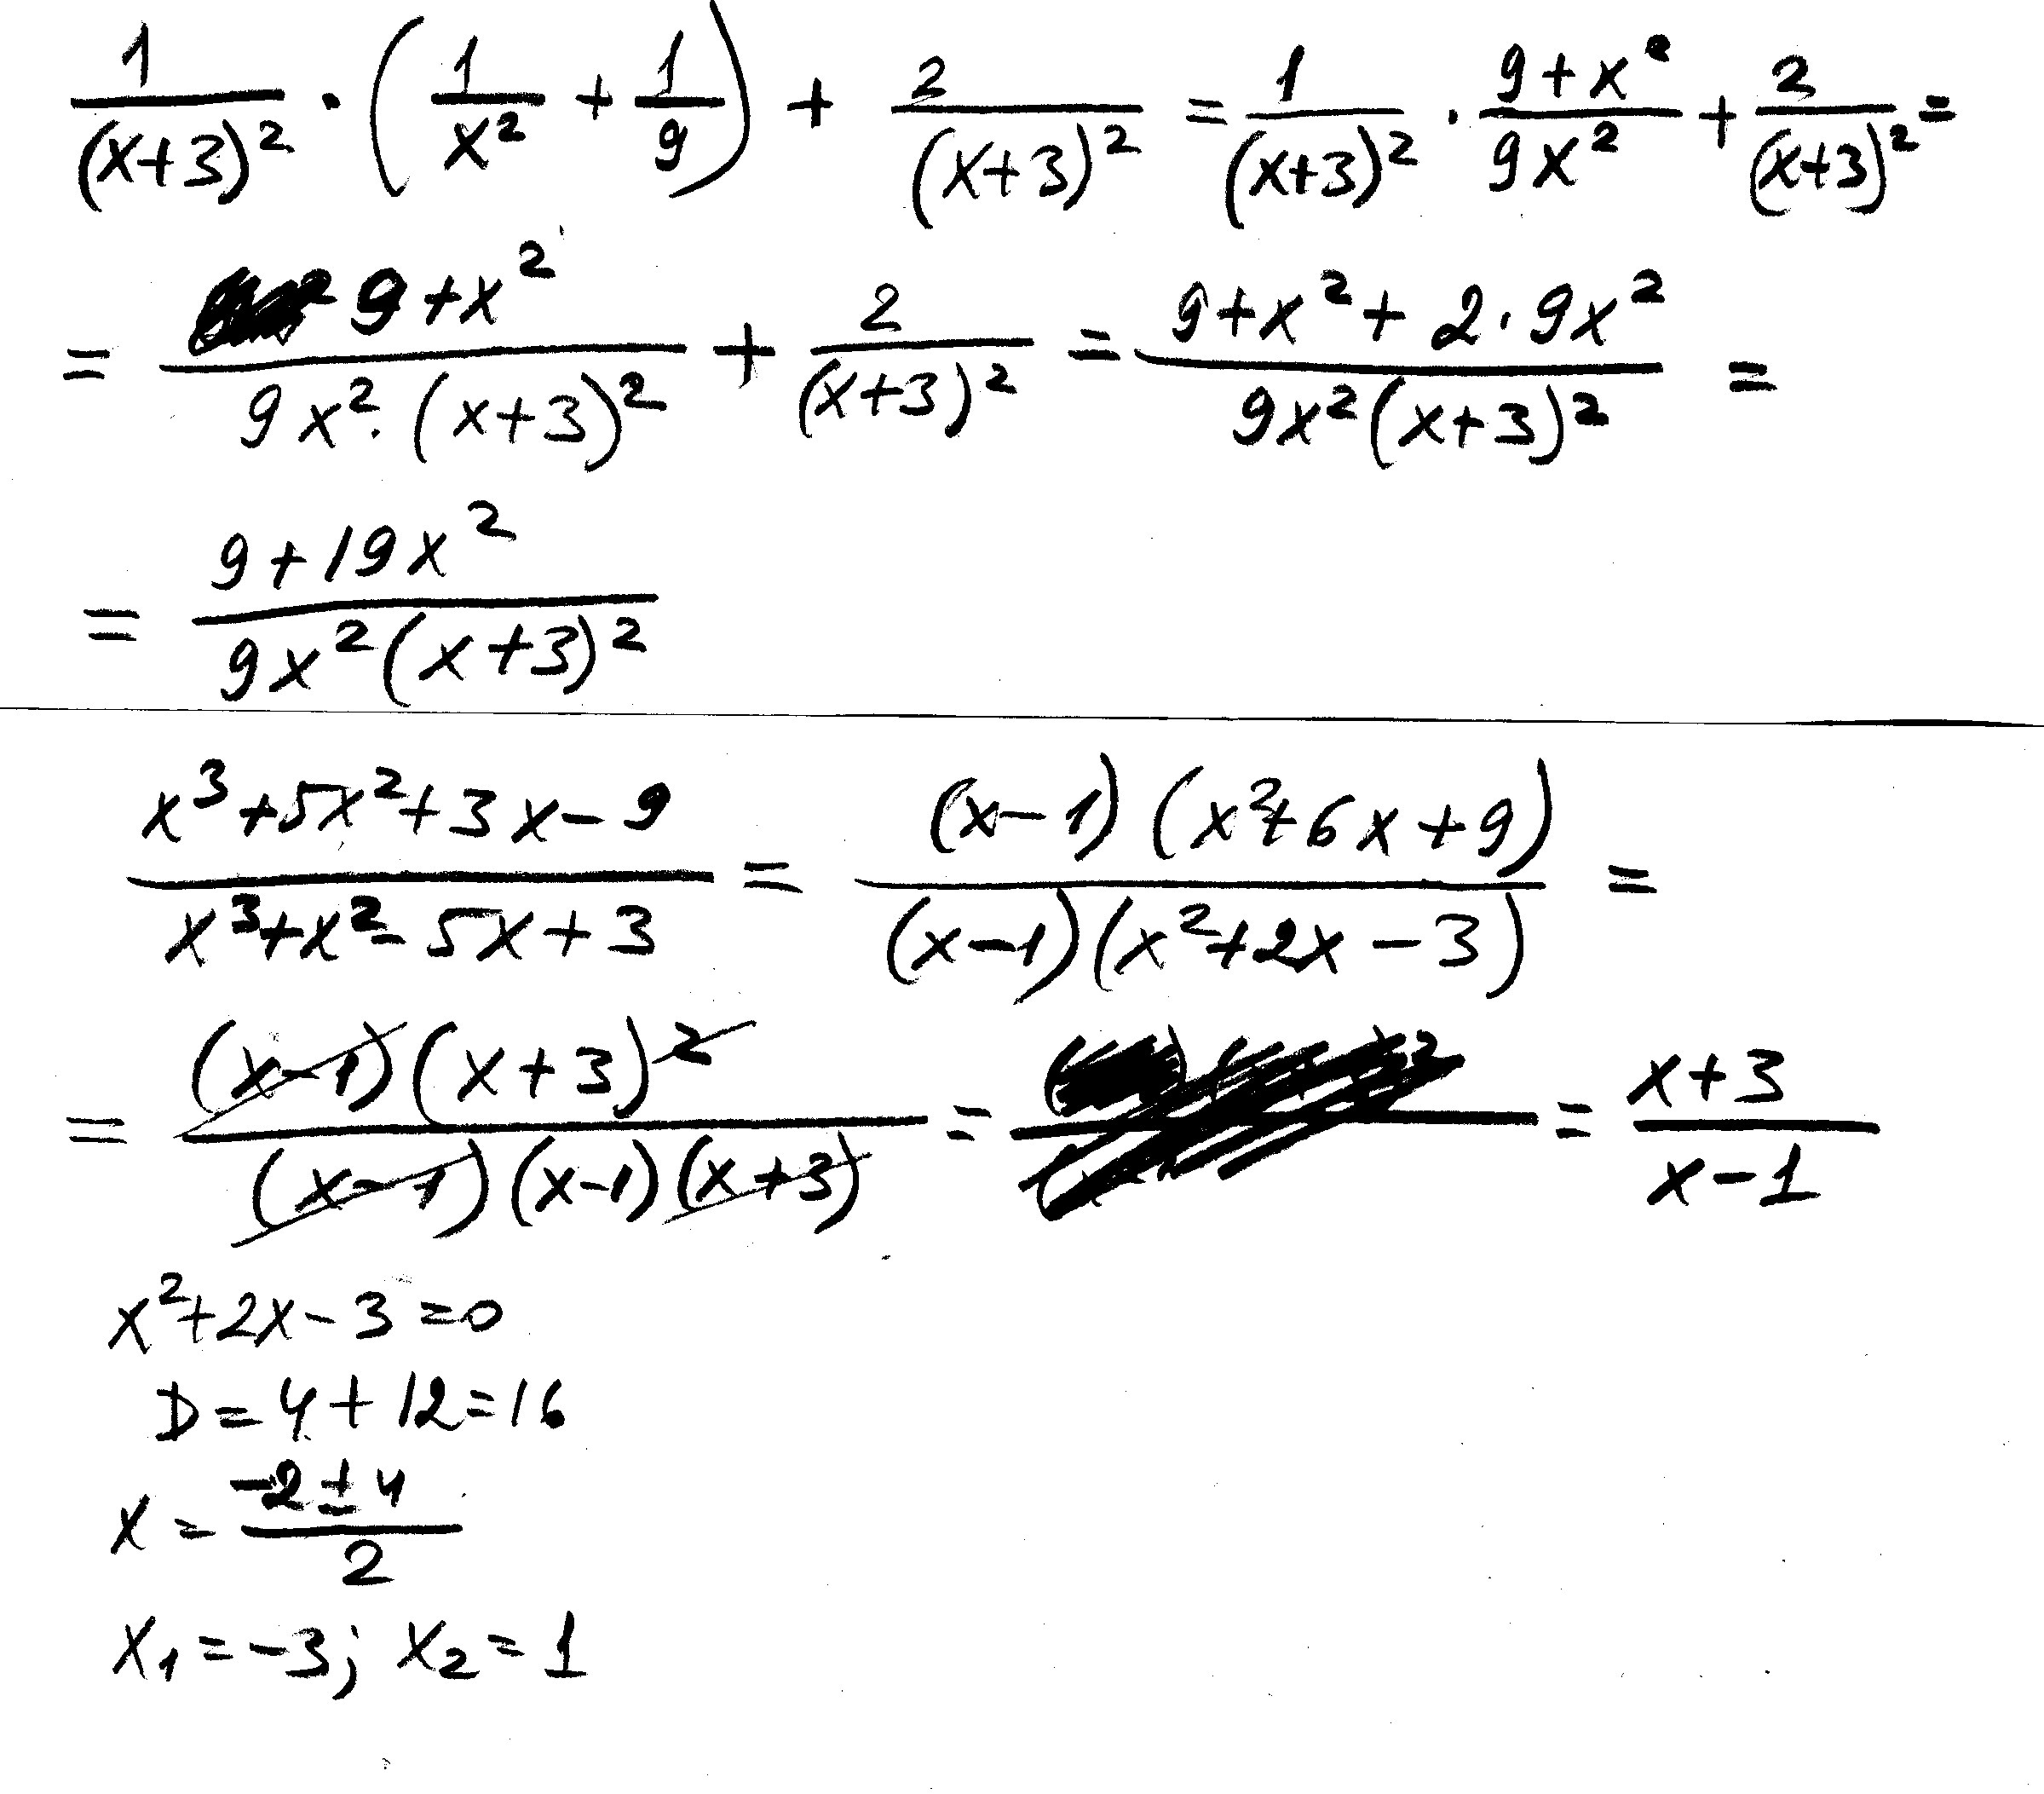 1/(x+3)² · (1/x² + 1/9) + 2/(x+3)² = 1/(x+3)² · (9+x²)/(9x²) + 2/(x+3)² =
= (9+x²)/(9x²·(x+3)²) + 2/(x+3)² = (9+x²+2·9x²)/(9x²(x+3)²) =
= (9+19x²)/(9x²(x+3)²)
(x³+5x²+3x-9)/(x³+x²-5x+3) = ((x-1)(x²+6x+9))/((x-1)(x²+2x-3)) =
= ((x-1)(x+3)²)/((x-1)(x-1)(x+3)) = = (x+3)/(x-1)
x²+2x-3=0
D=4+12=16
x=(-2±4)/2
x₁=-3; x₂=1